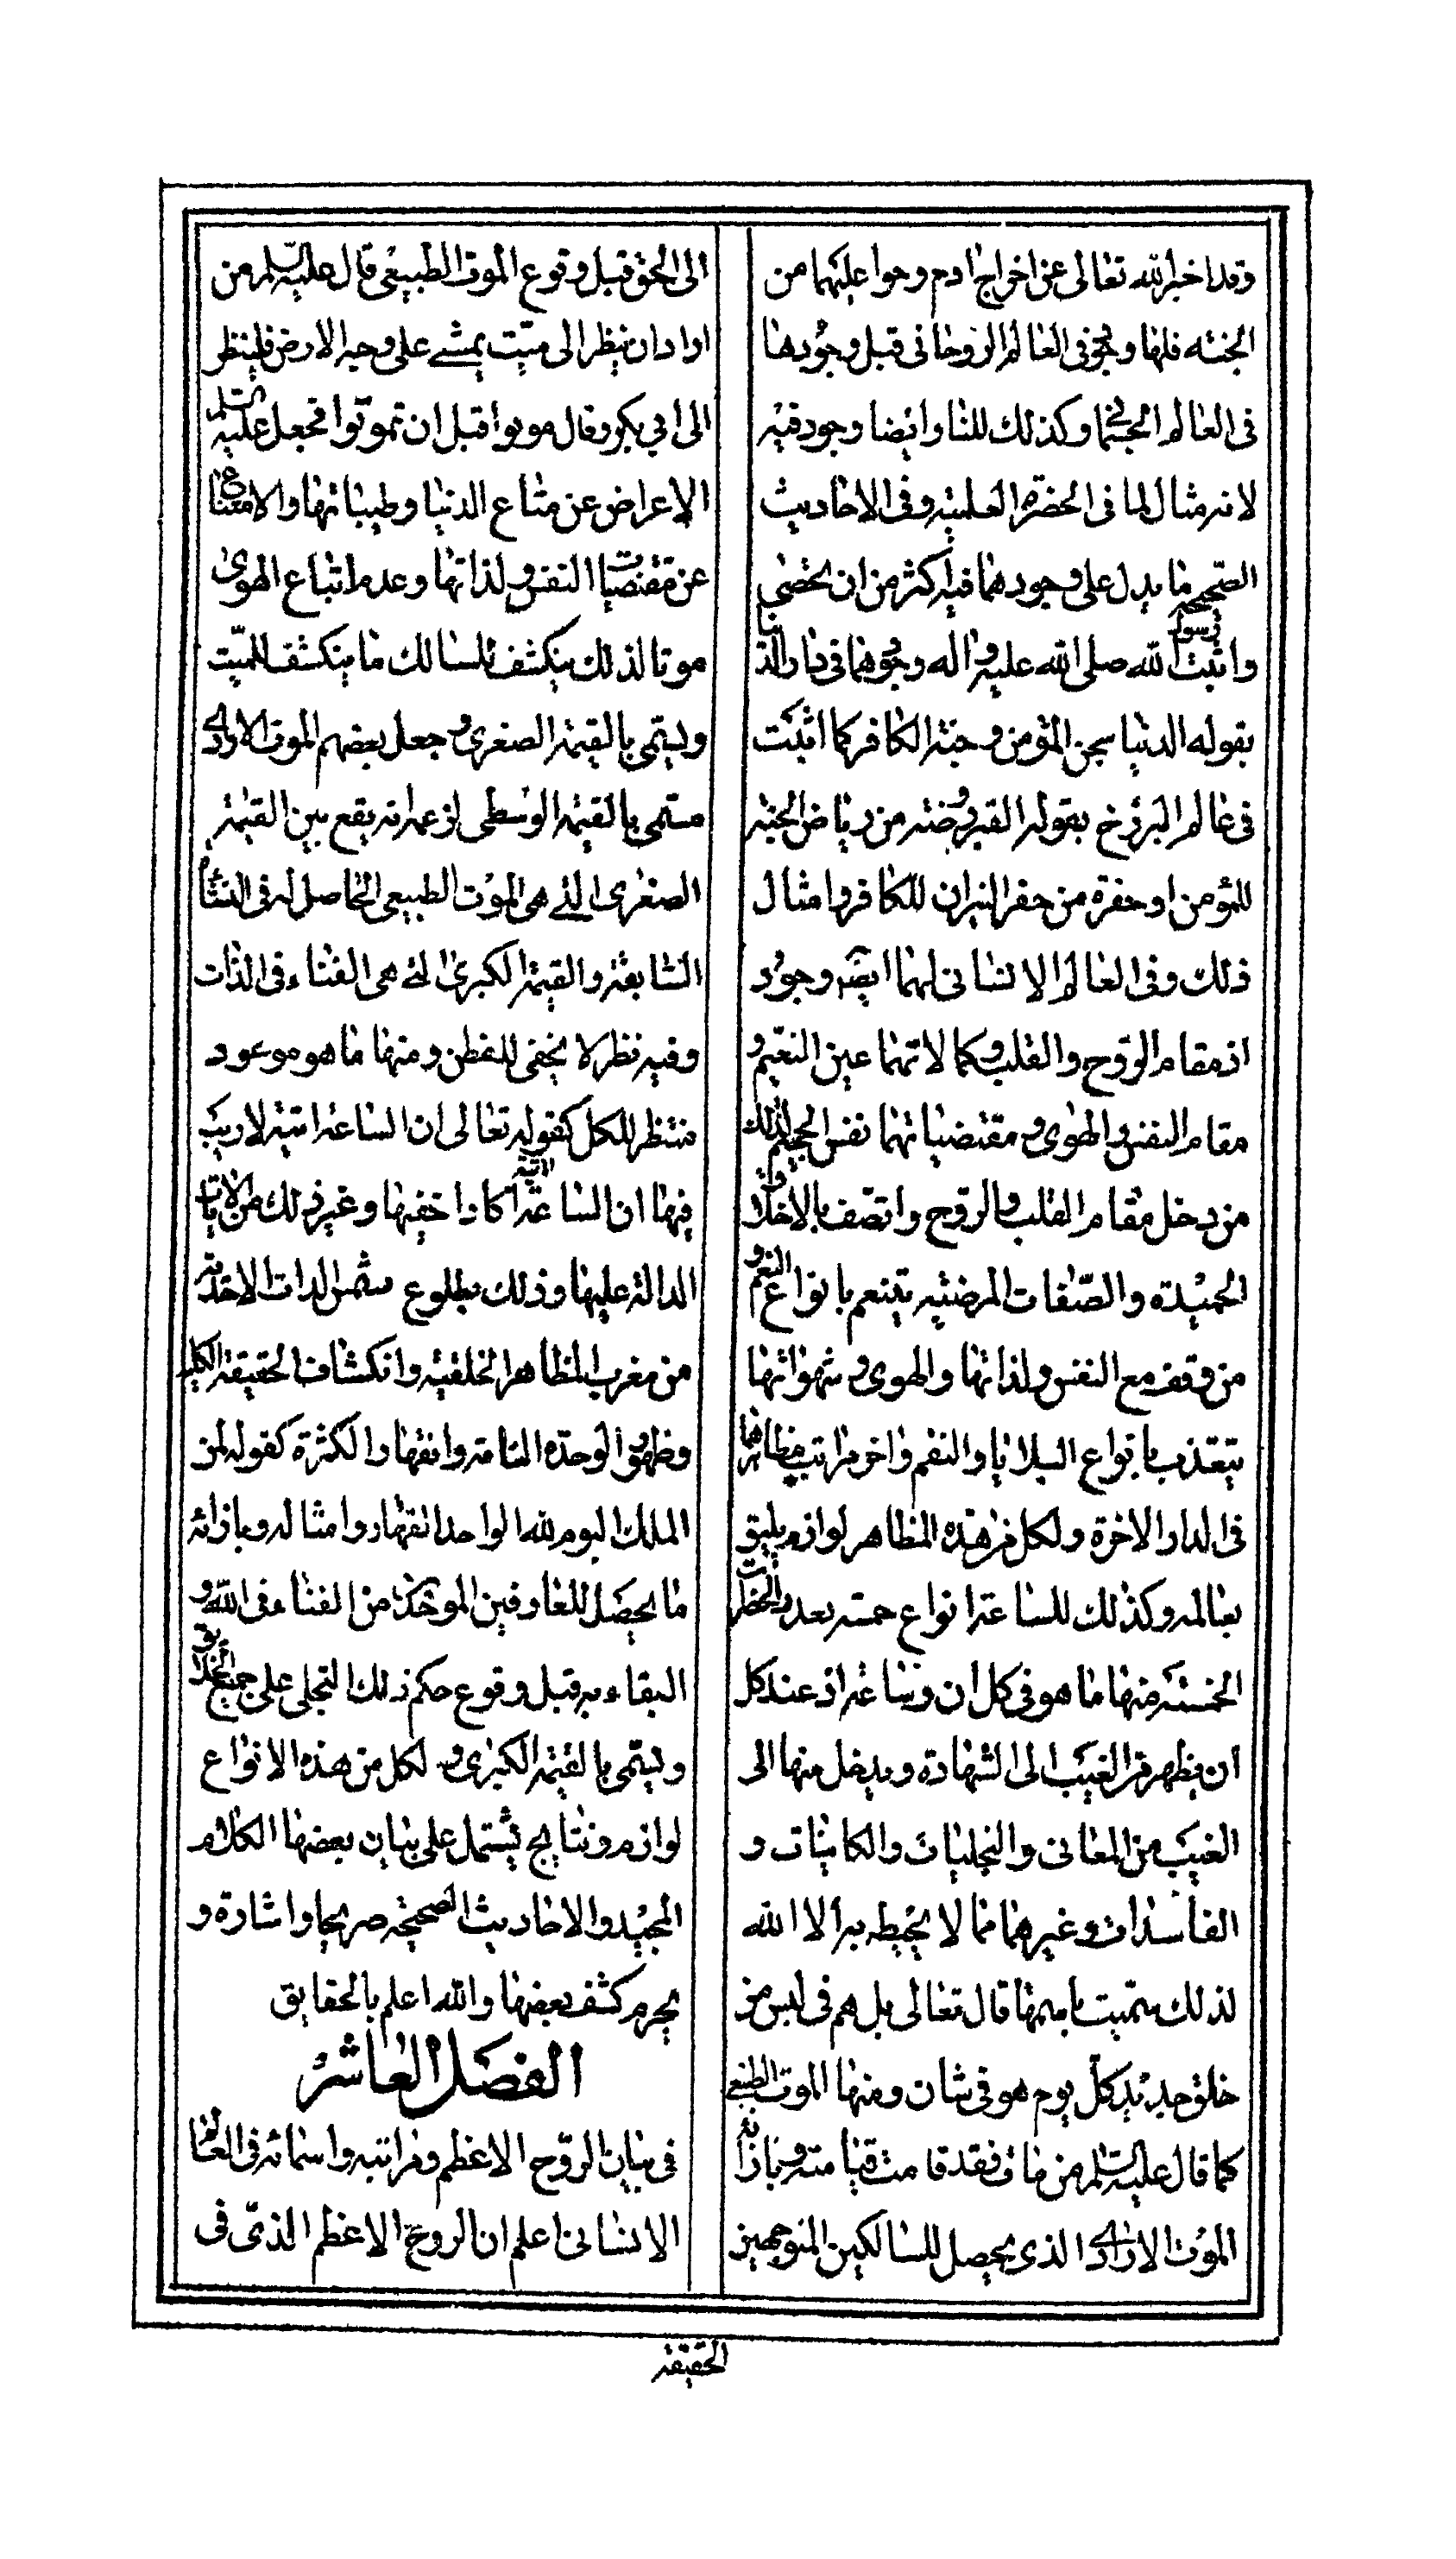 وقد اخبر الله تعالى عن اخراج ادم وحوا عليهما من
الجنة فلها وجود فى العالم الروحانى قبل وجودها
فى العالم الجسمانى وكذلك للنار ايضا وجود فيه
لانه مثال لما فى الحضرة العلمية وفى الاحاديث
الصحيحة ما يدل على وجودهما فيه اكثر من ان يحصى
واثبت رسول الله صلى الله عليه واله وجودهما فى دار الدنيا
بقوله الدنيا سجن المؤمن وجنة الكافر كما اثبت
فى عالم البرزخ بقوله القبر روضة من رياض الجنة
للمؤمن او حفرة من حفر النيران للكافر وامثال
ذلك وفى العالم الانسانى لهما ايضه وجود
اذ مقام الروح والقلب وكمالاتهما عين النعيم و
مقام النفس والهوى ومقتضياتهما نفس الجحيم لذلك
من دخل مقام القلب والروح واتصف بالاخلاق
الحميدة والصفات المرضية يتنعم بانواع النعم و
من وقف مع النفس ولذاتها والهوى وشهواتها
يتعذب بانواع البلايا والنقم واخر مراتب مظاهرهما
فى الدار الاخرة ولكل من هذه المظاهر لوازم يليق
بعالمه وكذلك للساعة انواع خمسة بعدد الحضرات
الخمسة منها ما هو فى كل ان وساعة اذ عند كل
ان يظهر من الغيب الى الشهادة ويدخل منها الى
الغيب من المعانى والتجليات والكاينات و
الفاسدات وغيرهما مما لا يحيط به الا الله
لذلك سميت باسمها قال تعالى بل هم فى لبس من
خلق جديد كل يوم هو فى شان ومنها الموت الطبيعى
كما قال عليه السلم من مات فقد قامت قيامته وبازائه
الموت الارادى الذى يحصل للسالكين المتوجهين
الى الحق قبل وقوع الموت الطبيعى قال عليه السلم من
اراد ان ينظر الى ميت يمشى على وجه الارض فلينظر
الى ابي بكر وقال موتوا قبل ان تموتوا فجعل عليه السلم
الاعراض عن متاع الدنيا وطيباتها والامتناع
عن مقتضيات النفس ولذاتها وعدم اتباع الهوى
موتا لذلك ينكشف للسالك ما ينكشف للميت
ويسمى بالقيمة الصغرى وجعل بعضهم الموت الارادى
مسمى بالقيمة الوسطى لزعمه انه يقع بين القيمة
الصغرى التى هى الموت الطبيعى الحاصل له فى النشاة
السابقة والقيمة الكبرى التى هى الفناء فى الذات
وفيه نظر لا يخفى للفطن ومنها ما هو موعود
منتظر للكل كقوله تعالى ان الساعة اتية لا ريب
فيها ان الساعة اتية اكاد اخفيها وغير ذلك من الايات
الدالة عليها وذلك بطلوع شمس الذات الاحدية
من مغرب المظاهر الخلقية وانكشاف الحقيقة الكلية
وظهور الوحدة التامة وانقهار الكثرة كقوله لمن
الملك اليوم لله الواحد القهار وامثاله وبازائه
ما يحصل للعارفين الموحدين من الفناء فى الله و
البقاء به قبل وقوع حكم ذلك التجلى على جميع الخلائق
ويسمى بالقيمة الكبرى ولكل من هذه الانواع
لوازم ونتايج يشتمل على بيان بعضها الكلام
المجيد والاحاديث الصحيحة صريحا واشارة و
يحرم كشف بعضها والله اعلم بالحقايق
الفصل العاشر
فى بيان الروح الاعظم ومراتبه واسمائه فى العالم
الانسانى اعلم ان الروح الاعظم الذى فى
الحقيقة